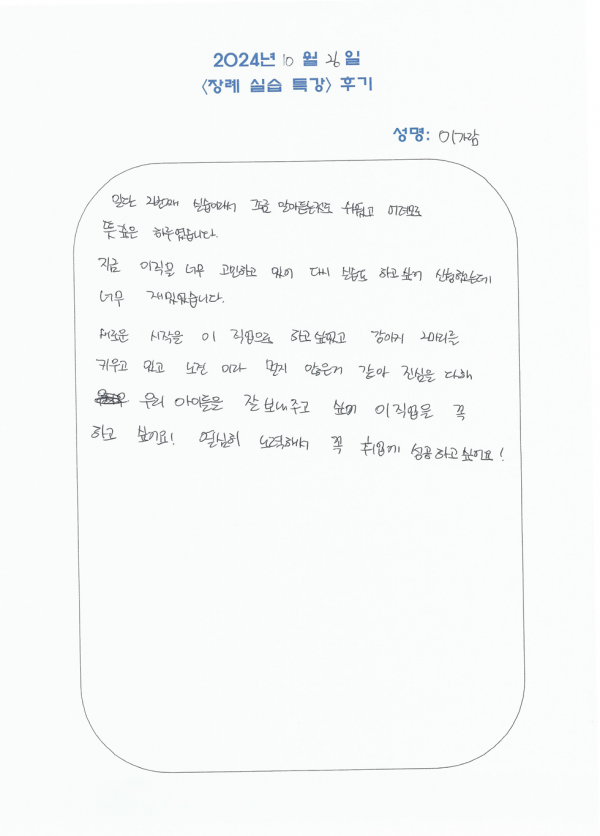 2024년 10월 26일
<장례 실습 특강> 후기
성명: 이가람
일단 2번째 실습이라서 조금 알아듣는것도 쉬웠고 여러모로
뜻 깊은 하루였습니다.
지금 이직을 너무 고민하고 있어 다시 실습도 하고싶어 신청했는데
너무 재밌었습니다.
새로운 시작을 이 직업으로 하고싶었고 강아지 2마리를
키우고 있고 노견 이라 멀지 않은거 같아 진심을 다해
우리 아이들을 잘 보내주고 싶어 이직업을 꼭
하고 싶어요! 열심히 노력해서 꼭 취업에 성공하고싶어요!